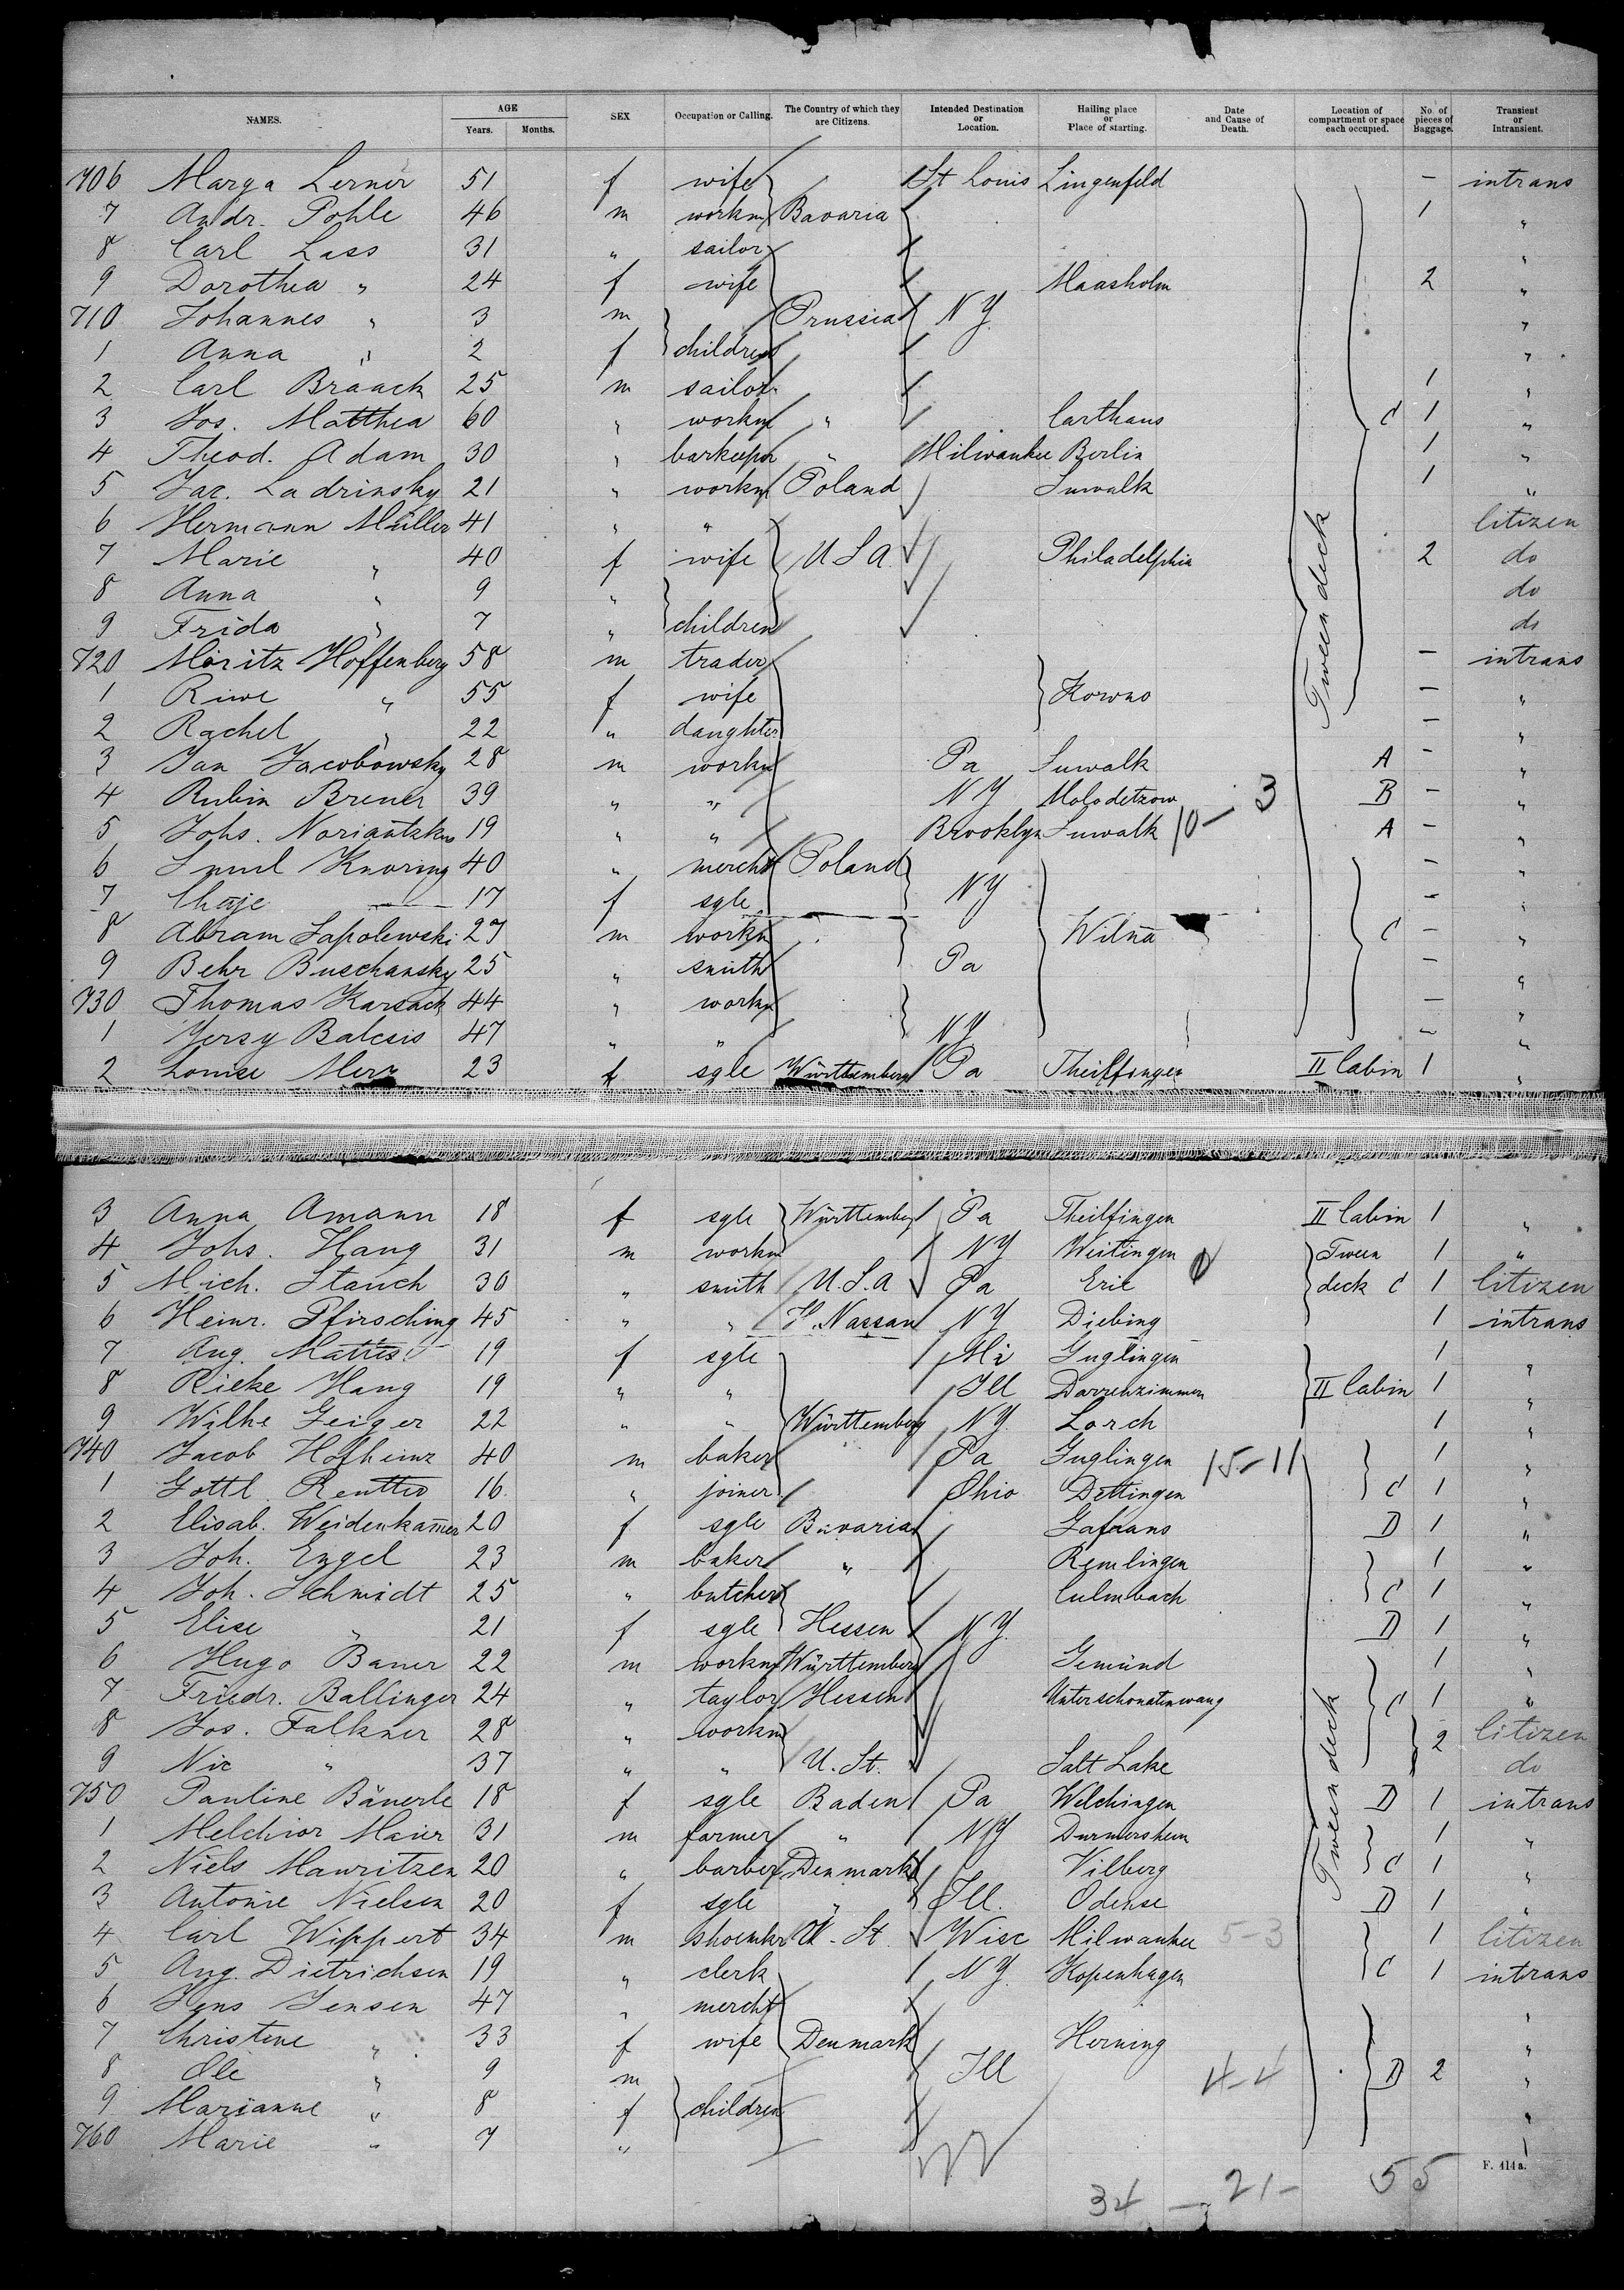 NAMES. AGE Years. Months. SEX Occupation or Calling. The Country of which they are Citizens. Intended Destination or Location. Hailing place or Place of starting. Date and Cause of Death. Location of compartment or space each occupied. No. of pieces of Baggage. Transient or Intransient.
706 Marga Lerner 51 f wife St Louis Lingenfeld – intrans
7 Andr. Pohle 46 m workm Bavaria 1 "
8 Carl Lass 31 " sailor "
9 Dorothea " 24 f wife Maasholm 2 "
710 Johannes " 3 m Prussia NY "
1 Anna " 2 f children "
2 Carl Braack 25 m sailor 1 "
3 Jos. Matthea 60 " workm " Carthaus C 1 "
4 Theod. Adam 30 " barkeeper " Milwaukee Berlin 1 "
5 Jac. Ladrinsky 21 " workm Poland Suwalk 1 "
6 Hermann Müller 41 " " Citizen
7 Marie " 40 f wife U S A Philadelphia 2 do
8 Anna " 9 " do
9 Frida " 7 " children Tween deck do
720 Moritz Hoffenberg 58 m trader – intrans
1 Riwe " 55 f wife Kowno – "
2 Rachel " 22 " daughter – "
3 Jan Jacobowsky 28 m workm Pa Suwalk A – "
4 Rubin Brener 39 " " NY Molodetzow B – "
5 Johs. 19 " " Brooklyn Suwalk 10 – 3 A – "
6 Smul Knoring 40 " mercht Poland – "
7 Chaje — 17 f sgle NY – "
8 Abram Sapolewski 27 m workm Wilna C – "
9 Behr Buschansky 25 " smith Pa – "
730 Thomas Karsack 44 " workm – "
1 Jersy Balcsis 47 " " NY – "
2 Louise Merz 23 f sgle Württemberg Pa Theilfingen II Cabin 1 "
3 Anna Amann 18 f sgle Württemberg Pa Theilfingen II Cabin 1 "
4 Johs. Haug 31 m workm NY Weitingen Tween 1 "
5 Mich. Stauch 30 " smith U.S.A Pa Erie deck C 1 Citizen
6 Heinr. Pfirsching 45 " " H. Nassau NY Diebing 1 intrans
7 Aug. Mattes 19 f sgle Mi Guglingen 1 "
8 Rieke Haug 19 " " Ill Dürrenzimmern II Cabin 1 "
9 Wilhe Geiger 22 " " Württemberg NY Lorch 1 "
740 Jacob Hofheinz 40 m baker Pa Guglingen 15–11 1 "
1 Gottl. Renttio 16 " joiner Ohio Dettingen C 1 "
2 Elisab. Weidenkam̅er 20 f sgle Bavaria D 1 "
3 Joh. Engel 23 m baker " Remlingen 1 "
4 Joh. Schmidt 25 " butcher Culmbach C 1 "
5 Elise " 21 f sgle Hessen NY D 1 "
6 Hugo Bauer 22 m workm Württemberg Gemünd 1 "
7 Friedr. Ballinger 24 " taylor Hessen C 1 "
8 Jos. Falkner 28 " workm 2 Citizen
9 Nic " 37 " " U. St. Salt Lake do
750 Pauline Bäuerle 18 f sgle Baden Pa Welchingen D 1 intrans
1 Melchior Maier 31 m farmer " NY Durmersheim 1 "
2 Niels Mauritzen 20 " barber Denmark Vilberg C 1 "
3 Antonie Nielsen 20 f sgle " Ill. Odense Tween deck D 1 "
4 Carl Wippert 34 m shoemkr U. St Wisc Milwaukee 5–3 1 Citizen
5 Aug. Dietrichsen 19 " clerk NY Kopenhagen C 1 intrans
6 Jens Jensen 47 " mercht "
7 Christine " 33 f wife Denmark Herning "
8 Ole " 9 m Ill 4–4 D 2 "
9 Marianne " 8 f children "
760 Marie " 7 " "
F. 414a.
34 – 21 – 55